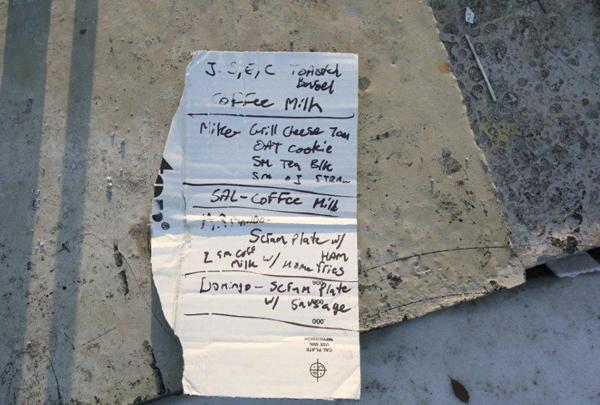 J. S, E, C Toasted
Bagel
Coffee Milk
Mike Grill Cheese Tom
OAT Cookie
SM Tea Blk
SM OJ STRAW
SAL-COFFEE Milk
Scram Plate w/
HAM
2 sm Coff
Milk w/ Home Fries
Domingo - Scram Plate
w/ Sausage
000.
CAL PLATE
USE MIN.